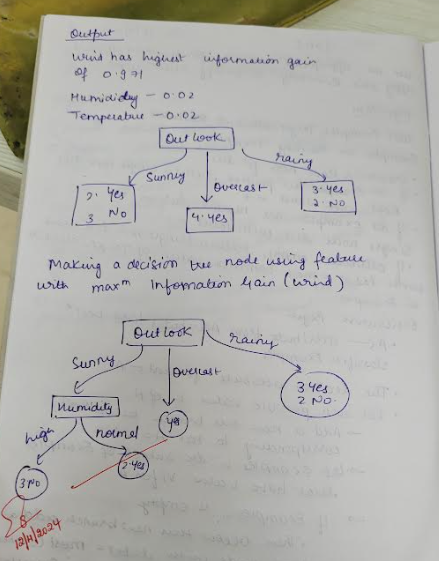 Output
Wind has highest information gain
of 0.971
Humididey - 0.02
Temperature - 0.02
Outlook
Sunny
Overcast
rainy
2. Yes
3 No
4. Yes
3. Yes
2. No
Making a decision tree node using feature
with maxm Infomation Gain (wind)
Outlook
Sunny
Overcast
rainy
Humidity
Yes
3 Yes
2 No.
high
normal
3 No
2. Yes
12/4/2024